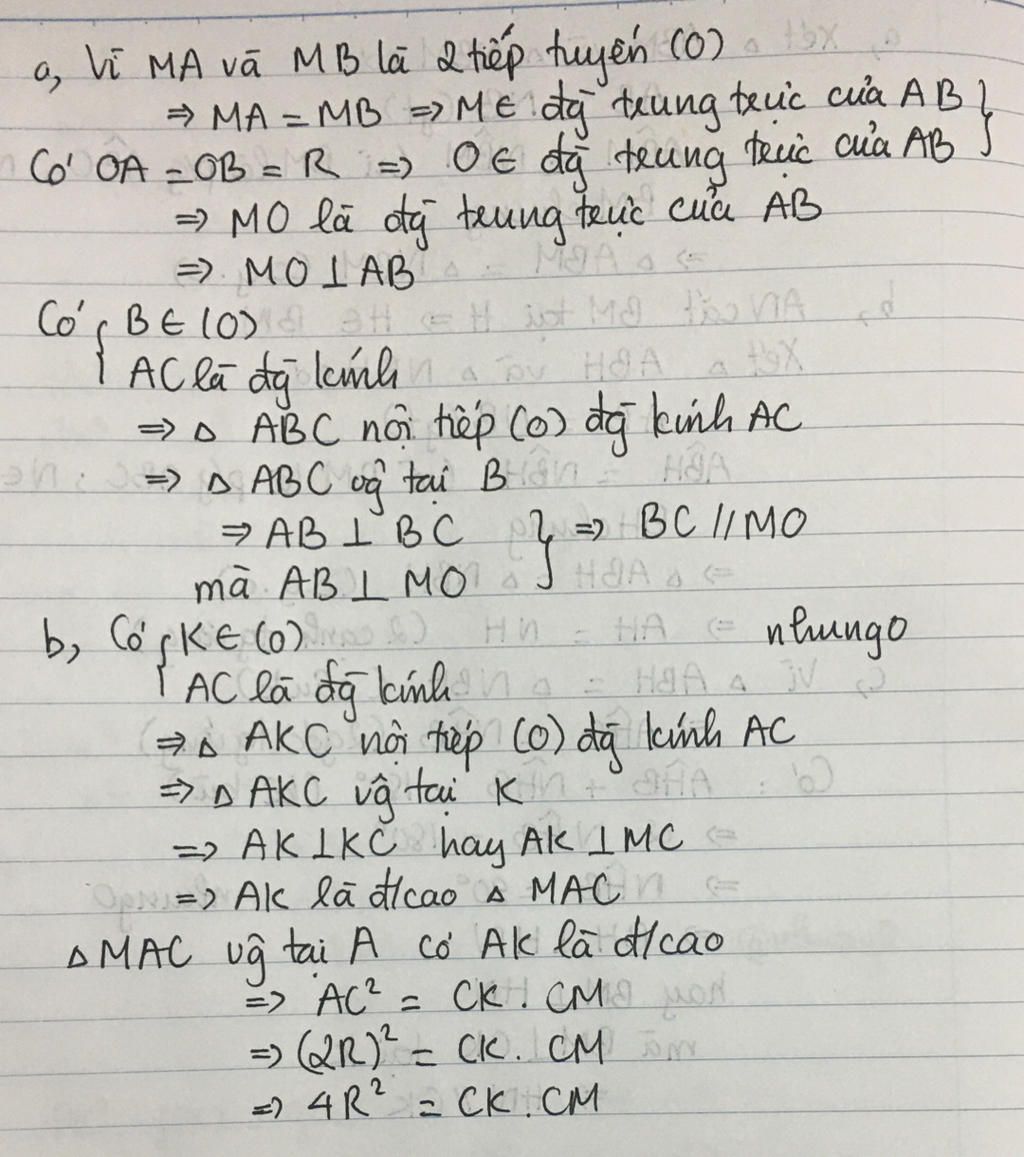 a, Vì MA và MB là 2 tiếp tuyến (O)
⇒ MA = MB ⇒ M ∈ đg trung trực của AB }
Có OA = OB = R ⇒ O ∈ đg trung trực của AB
⇒ MO là đg trung trực của AB
⇒ MO ⊥ AB
Có { B ∈ (O)
AC là đg kính
⇒ △ ABC nội tiếp (O) đg kính AC
⇒ △ ABC vg tại B
⇒ AB ⊥ BC } ⇒ BC // MO
mà AB ⊥ MO
b, Có { K ∈ (O) nhungo
AC là đg kính
⇒ △ AKC nội tiếp (O) đg kính AC
⇒ △ AKC vg tại K
⇒ AK ⊥ KC hay AK ⊥ MC
⇒ AK là đ/cao △ MAC
△ MAC vg tại A có AK là đ/cao
⇒ AC² = CK . CM
⇒ (2R)² = CK . CM
⇒ 4R² = CK . CM